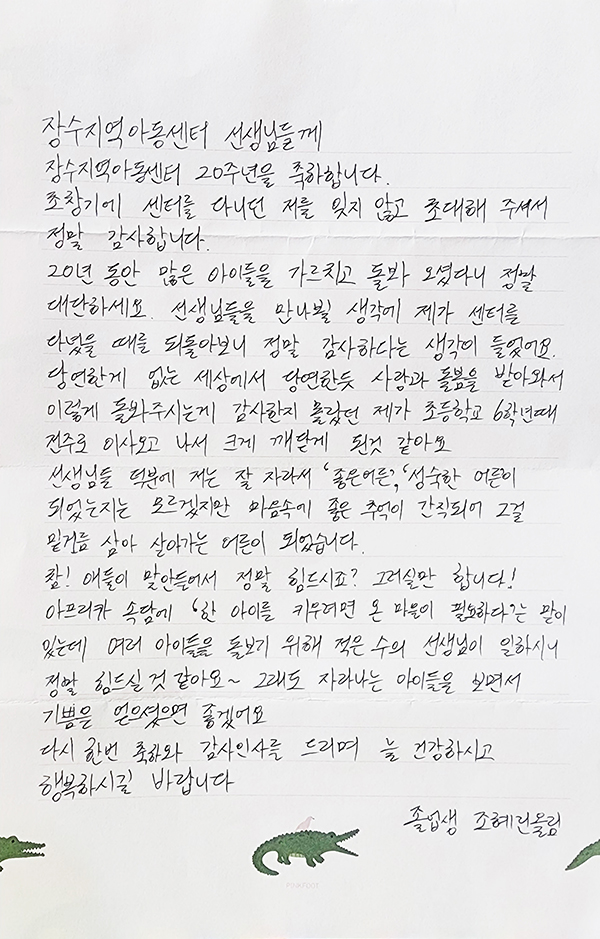 장수지역아동센터 선생님들께
장수지역아동센터 20주년을 축하합니다.
초창기에 센터를 다니던 저를 잊지 않고 초대해 주셔서
정말 감사합니다.
20년 동안 많은 아이들을 가르치고 돌봐 오셨다니 정말
대단하세요. 선생님들을 만나뵐 생각에 제가 센터를
다녔을 때를 되돌아보니 정말 감사하다는 생각이 들었어요.
당연한게 없는 세상에서 당연한듯 사랑과 돌봄을 받아와서
이렇게 돌봐주시는게 감사한지 몰랐던 제가 초등학교 6학년때
전주로 이사오고 나서 크게 깨닫게 된것 같아요
선생님들 덕분에 저는 잘 자라서 '좋은어른', '성숙한 어른'이
되었는지는 모르겠지만 마음속에 좋은 추억이 간직되어 그걸
밑거름 삼아 살아가는 어른이 되었습니다.
참! 애들이 말안들어서 정말 힘드시죠? 그러실만 합니다!
아프리카 속담에 '한 아이를 키우려면 온 마을이 필요하다'는 말이
있는데 여러 아이들을 돌보기 위해 적은 수의 선생님이 일하시니
정말 힘드실 것 같아요~ 그래도 자라나는 아이들을 보면서
기쁨을 얻으셨으면 좋겠어요
다시 한번 축하와 감사인사를 드리며 늘 건강하시고
행복하시길 바랍니다
졸업생 조혜린올림